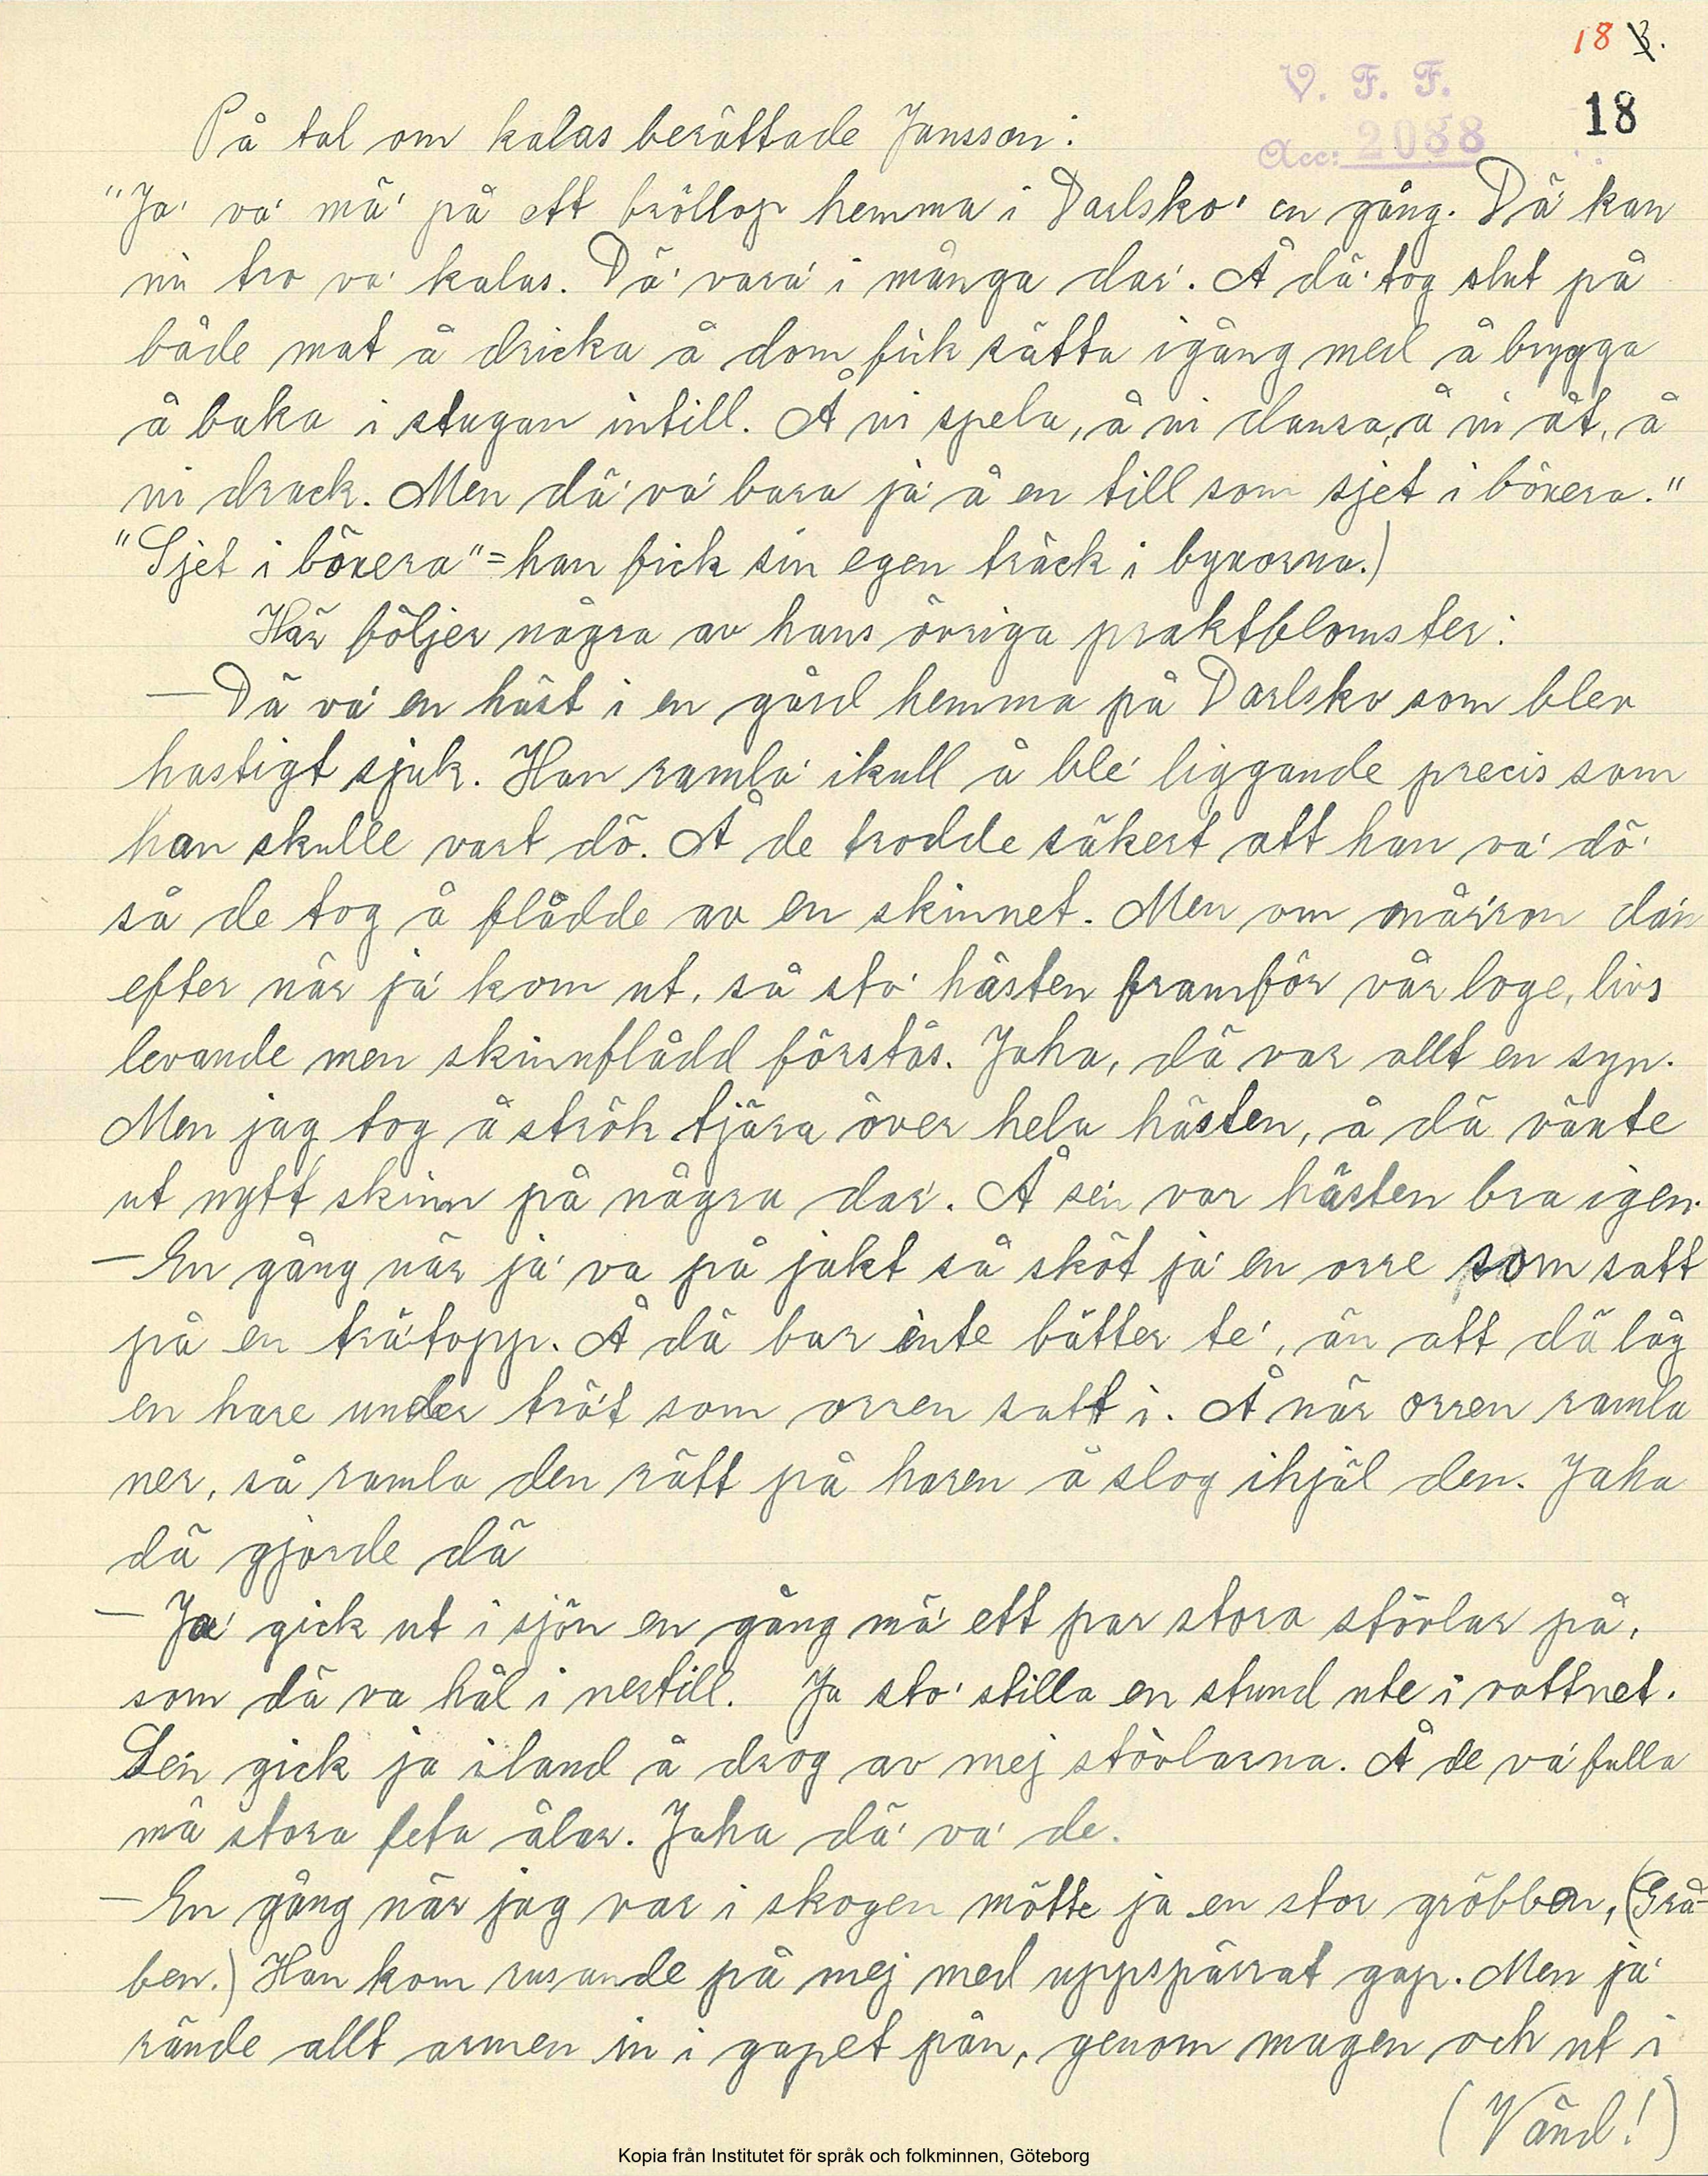 18 3.
V. F. F.
18
Acc: 2088
På tal om kalas berättade Jansson:
"Ja' va' mä' på ett bröllop hemma i Darlsko' en gång. Dä' kan
ni tro va' kalas. Dä' vara' i många dar'. Å dä' tog slut på
både mat å dricka å dom fick sätta igång med å brygga
å baka i stugan intill. Å vi spela, å vi dansa, å vi åt, å
vi drack. Men dä' va' bara ja' å en till som sjet i böxera."
"Sjet i böxera" = han fick sin egen träck i byxorna.)
Här följer några av hans övriga praktblomster:
— Dä va' en häst i en gård hemma på Darlsko som blev
hastigt sjuk. Han ramla' ikull å ble' liggande precis som
han skulle vart dö. Å de trodde säkert att han va' dö'
så de tog å flådde av en skinnet. Men om mårron da'n
efter när ja' kom ut, så sto' hästen framför vår loge, livs
levande men skinnflådd förstås. Jaha, dä var allt en syn.
Men jag tog å strök tjära över hela hästen, å dä växte
ut nytt skinn på några dar'. Å se'n var hästen bra igen.
— En gång när ja' va på jakt så sköt ja' en orre som satt
på en trä'topp. Å dä bar inte bätter te', än att dä låg
en hare under trä't som orren satt i. Å när orren ramla
ner, så ramla den rätt på haren å slog ihjäl den. Jaha
dä gjorde dä
— Ja' gick ut i sjön en gång mä' ett par stora stövlar på,
som dä va hål i nertill. Ja sto' stilla en stund ute i vattnet.
Se'n gick ja iland å drog av mej stövlarna. Å de va' fulla
mä stora feta ålar. Jaha dä' va' de.
— En gång när jag var i skogen mötte ja en stor gröbben, (Grå-
ben.) Han kom rusande på mej med uppspärrat gap. Men ja'
rände allt armen in i gapet på'n, genom magen och ut i
(Vänd!)
Kopia från Institutet för språk och folkminnen, Göteborg